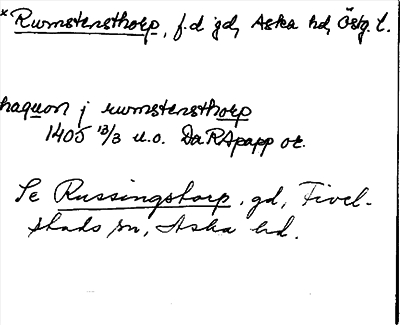 *Rumstensthorp, f.d gd, Aska hd, Östg. l.
haquon j rumstensthorp
1405 13/3 u.o. DaRApapp or.
Se Russingstorp, gd, Fivel-
stads sn, Aska hd.